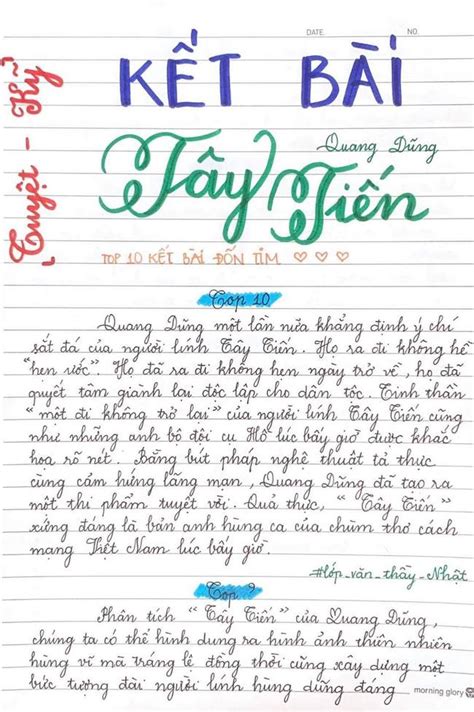 DATE. NO.
KẾT BÀI
Tuyệt - Kỹ
Quang Dũng
Tây Tiến
TOP 10 KẾT BÀI ĐỐN TIM ♡ ♡ ♡
Top 10
Quang Dũng một lần nữa khẳng định ý chí
sắt đá của người lính Tây Tiến. Họ ra đi không hề
"hẹn ước". Họ đã ra đi không hẹn ngày trở về, họ đã
quyết tâm giành lại độc lập cho dân tộc. Tinh thần
"một đi không trở lại" của người lính Tây Tiến cũng
như những anh bộ đội cụ Hồ lúc bấy giờ được khắc
họa rõ nét. Bằng bút pháp nghệ thuật tả thực
cùng cảm hứng lãng mạn, Quang Dũng đã tạo ra
một thi phẩm tuyệt vời. Quả thực, "Tây Tiến"
xứng đáng là bản anh hùng ca của chùm thơ cách
mạng Việt Nam lúc bấy giờ.
#lớp_văn_thầy_Nhật
Top 9
Phân tích "Tây Tiến" của Quang Dũng,
chúng ta có thể hình dung ra hình ảnh thiên nhiên
hùng vĩ mà tráng lệ đồng thời cũng xây dựng một
bức tượng đài người lính hùng dũng đáng
morning glory